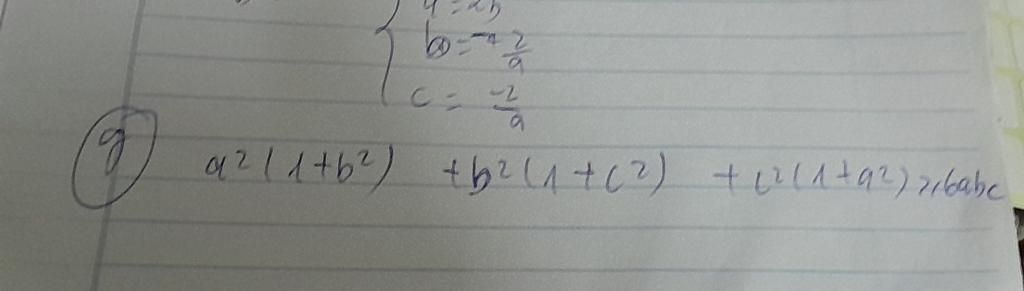 b = - \frac{2}{9}
c = \frac{-2}{9}
g a²(1+b²) + b²(1+c²) + c²(1+a²) ≥ 6abc